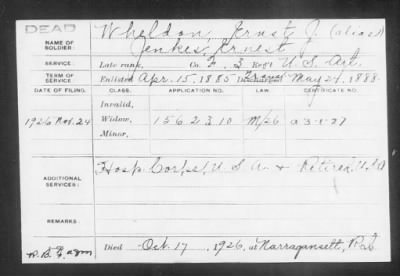 DEAD
Wheldon, Ernst J. (alias)
NAME OF SOLDIER:
Jenkes, Ernest J.
SERVICE: Late rank, Co. F, 3 Reg't U.S. Art.
TERM OF SERVICE: Enlisted Apr. 15, 1885 May 24, 1888
DATE OF FILING. CLASS. APPLICATION NO. LAW CERTIFICATE NO.
Invalid,
1926 Nov. 24 Widow, 1562310 A-3-1-27
Minor,
ADDITIONAL SERVICES: Hosp. Corps, U.S.A. & Retired U.S.A.
REMARKS:
Died Oct. 17, 1926, at Narragansett, R.I.